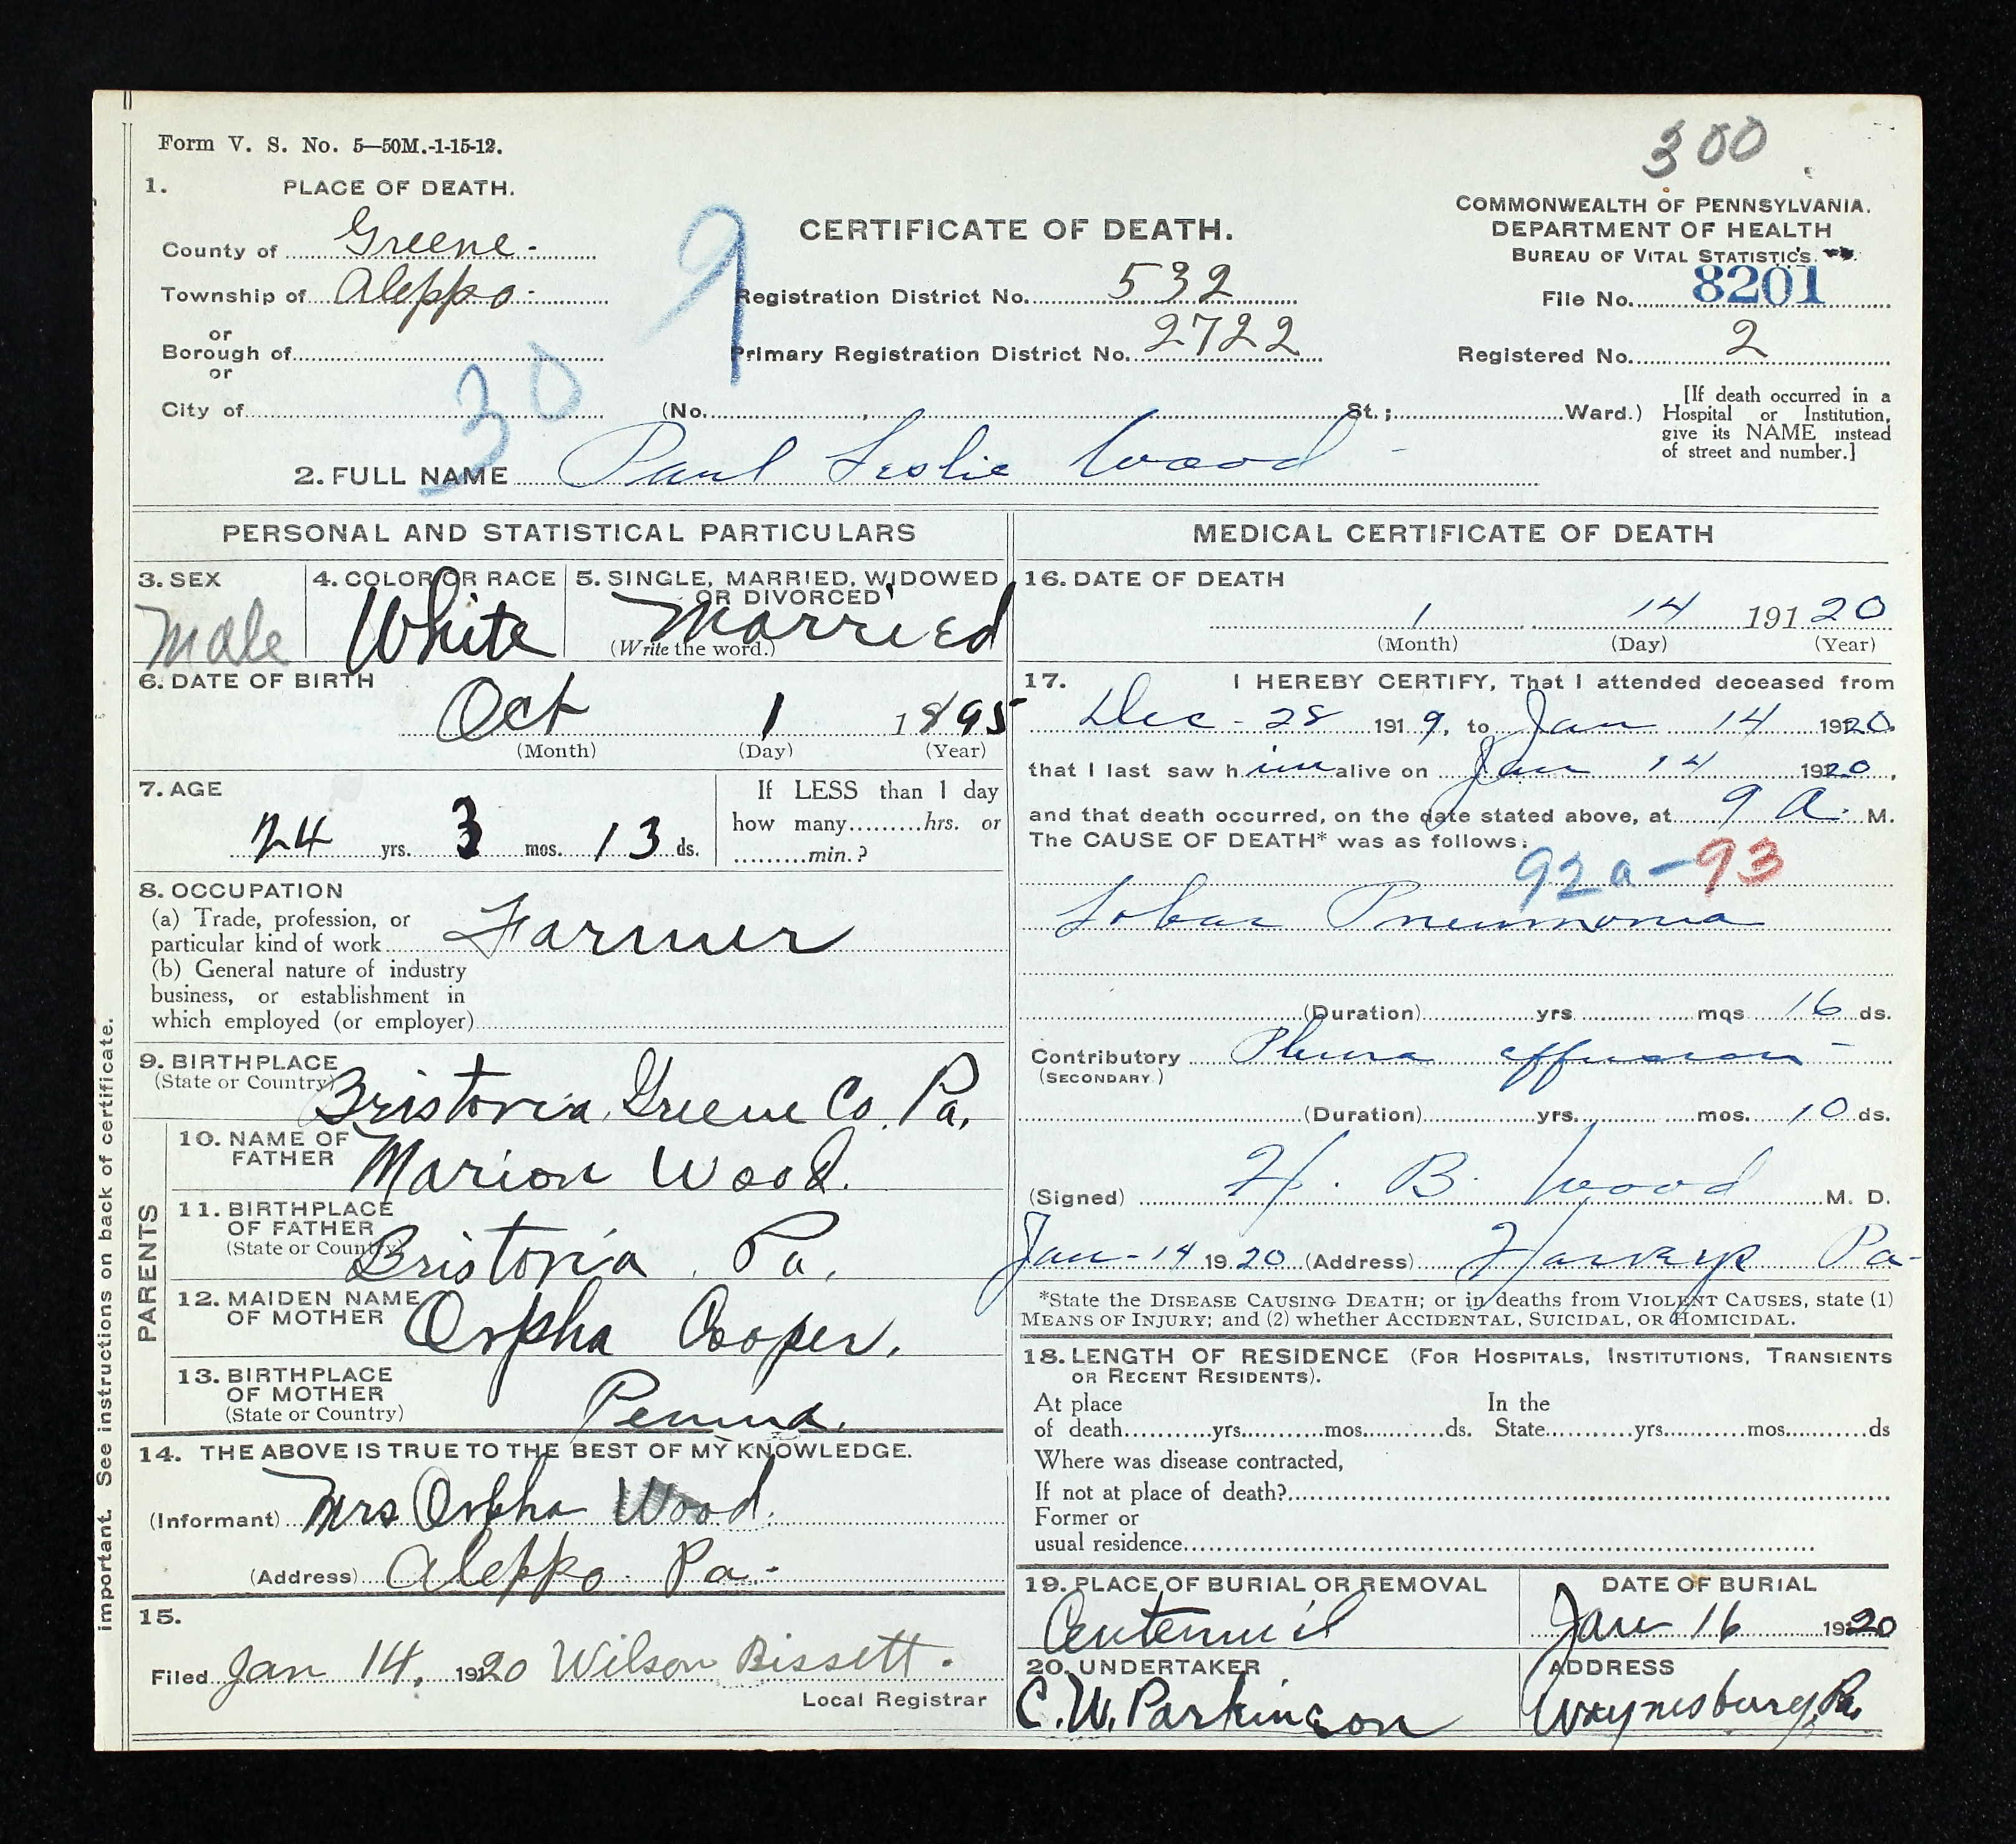 Form V. S. No. 5—50M.-1-15-12.
300
1. PLACE OF DEATH.
County of Greene
Township of Aleppo
or
Borough of
or
City of
9
30
CERTIFICATE OF DEATH.
Registration District No. 532
Primary Registration District No. 2722
(No. , St. ; Ward.)
COMMONWEALTH OF PENNSYLVANIA.
DEPARTMENT OF HEALTH
BUREAU OF VITAL STATISTICS.
File No. 8201
Registered No. 2
[If death occurred in a
Hospital or Institution,
give its NAME instead
of street and number.]
2. FULL NAME Paul Leslie Wood
PERSONAL AND STATISTICAL PARTICULARS
3. SEX
Male
4. COLOR OR RACE
White
5. SINGLE, MARRIED, WIDOWED
OR DIVORCED
(Write the word.)
Married
6. DATE OF BIRTH
Oct 1 1895
(Month) (Day) (Year)
7. AGE
24 yrs. 3 mos. 13 ds.
If LESS than 1 day
how many hrs. or
min.?
8. OCCUPATION
(a) Trade, profession, or
particular kind of work Farmer
(b) General nature of industry
business, or establishment in
which employed (or employer)
9. BIRTHPLACE
(State or Country)
Bristoria, Greene Co. Pa.
PARENTS
10. NAME OF
FATHER
Marion Wood.
11. BIRTHPLACE
OF FATHER
(State or Country)
Bristoria, Pa.
12. MAIDEN NAME
OF MOTHER
Orpha Cooper.
13. BIRTHPLACE
OF MOTHER
(State or Country)
Penna.
14. THE ABOVE IS TRUE TO THE BEST OF MY KNOWLEDGE.
(Informant) Mrs Orpha Wood.
(Address) Aleppo Pa-
15.
Filed Jan 14, 1920 Wilson Bissett.
Local Registrar
MEDICAL CERTIFICATE OF DEATH
16. DATE OF DEATH
1 14 191 20
(Month) (Day) (Year)
17. I HEREBY CERTIFY, That I attended deceased from
Dec - 28 1919, to Jan 14 1920
that I last saw him alive on Jan 14 1920,
and that death occurred, on the date stated above, at 9 a. M.
The CAUSE OF DEATH* was as follows:
92a-93
Lobar Pneumonia
(Duration) yrs. mos 16 ds.
Contributory Pleura effusion -
(SECONDARY)
(Duration) yrs. mos. 10 ds.
(Signed) H. B. Wood M. D.
Jan-14 1920 (Address) Harveys Pa-
*State the DISEASE CAUSING DEATH; or in deaths from VIOLENT CAUSES, state (1)
MEANS OF INJURY; and (2) whether ACCIDENTAL, SUICIDAL, OR HOMICIDAL.
18. LENGTH OF RESIDENCE (FOR HOSPITALS, INSTITUTIONS, TRANSIENTS
OR RECENT RESIDENTS).
At place In the
of death yrs. mos. ds. State yrs. mos. ds
Where was disease contracted,
If not at place of death?
Former or
usual residence
19. PLACE OF BURIAL OR REMOVAL
Centennial
DATE OF BURIAL
Jan 16 1920
20. UNDERTAKER
C. W. Parkinson
ADDRESS
Waynesburg, Pa.
important. See instructions on back of certificate.